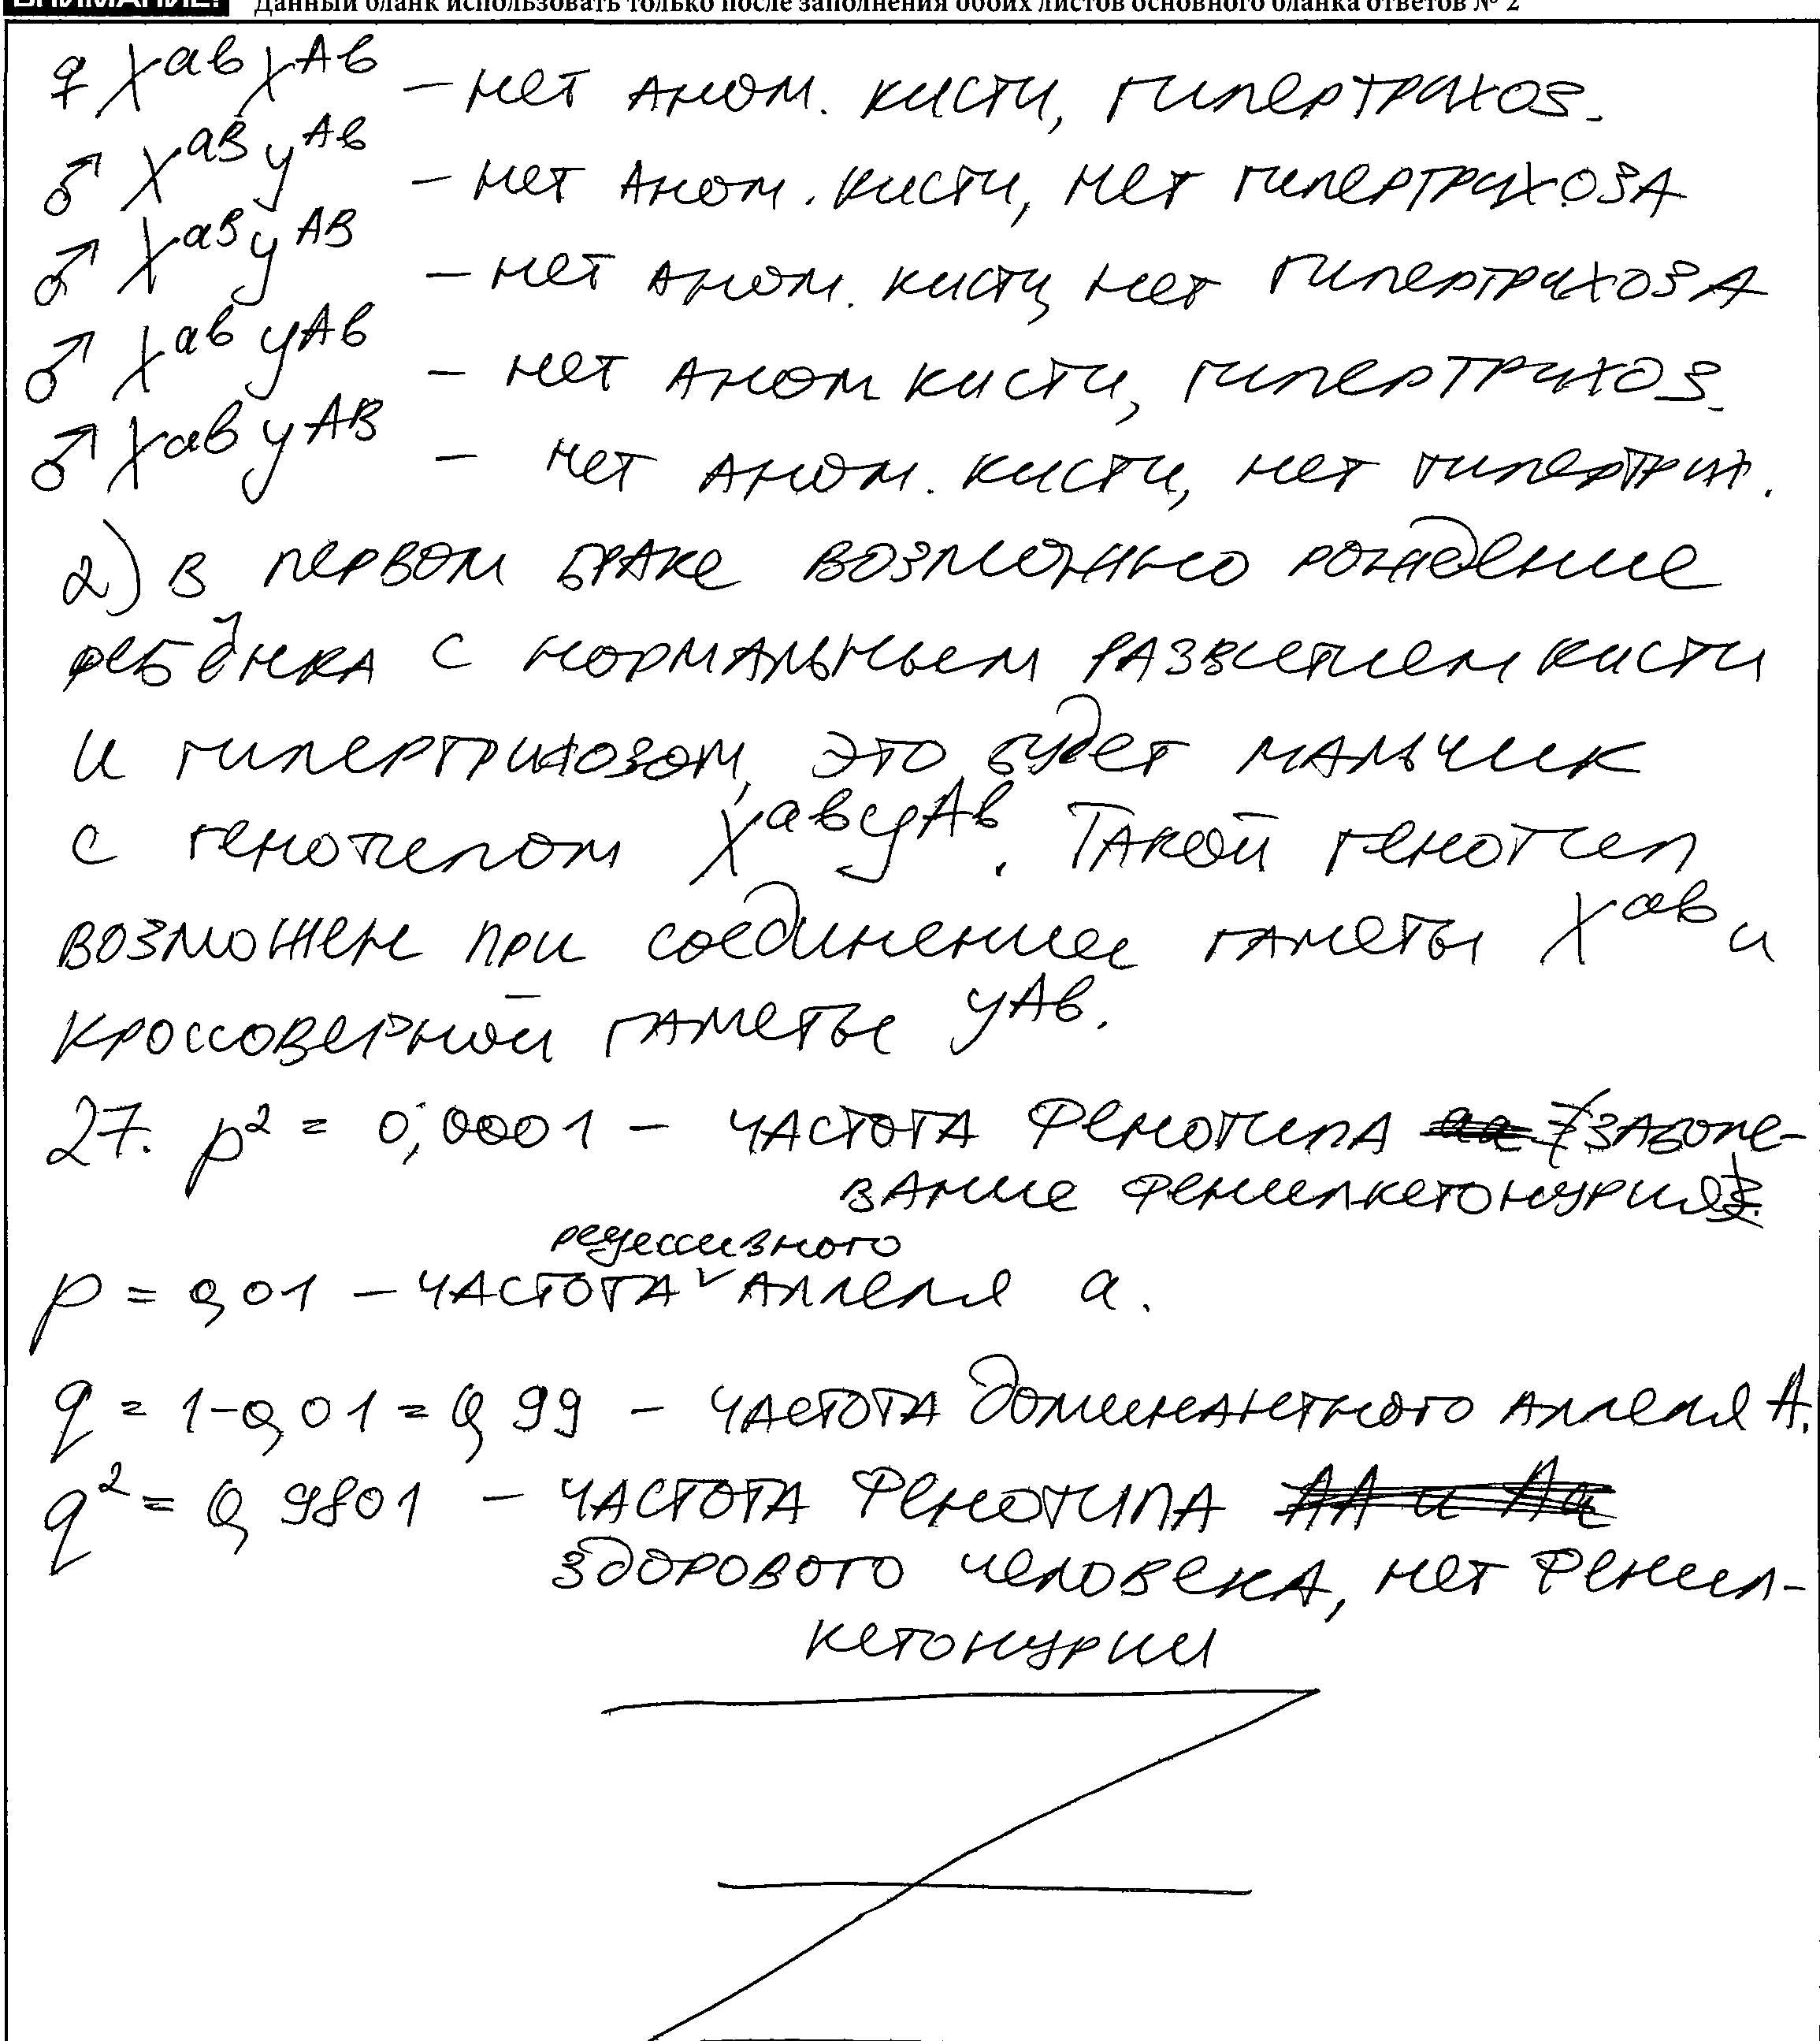 ВНИМАНИЕ! Данный бланк использовать только после заполнения обоих листов основного бланка ответов № 2
♀ X^ab X^Ab – нет аном. кисти, гипертрихоз.
♂ X^aB y^Ab – нет аном. кисти, нет гипертрихоза
♂ X^aB y^AB – нет аном. кисти, нет гипертрихоза
♂ X^ab y^Ab – нет аном кисти, гипертрихоз.
♂ X^ab y^AB – нет аном. кисти, нет гипертрих.
2) в первом браке возможно рождение
ребёнка с нормальным развитием кисти
и гипертрихозом, это будет мальчик
с генотипом X^ab y^Ab. Такой генотип
возможен при соединении гаметы X^ab и
кроссоверной гаметы y^Ab.
27. p² = 0,0001 – частота фенотипа заболе-
вание фенилкетонурия
рецессивного
p = 0,01 – частота ᵛ аллеля a.
q = 1-0,01 = 0,99 – частота доминантного аллеля A.
q² = 0,9801 – частота фенотипа AA и Aa
здорового человека, нет фенил-
кетонурии